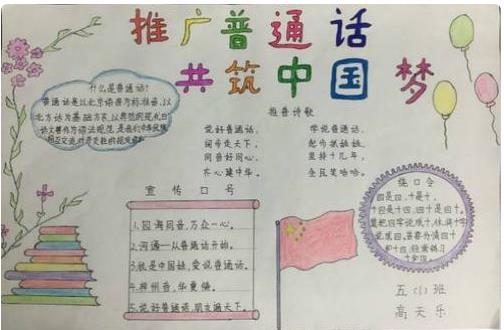 推广普通话
共筑中国梦
什么是普通话?
普通话是以北京语音为标准音,以
北方话为基础方言,以典范的现代白
话文著作为语法规范
推普诗歌
说好普通话,
闻书走天下,
同音好同心,
齐心建中华。
学说普通话,
起步抓娃娃,
坚持十几年,
全民笑哈哈。
宣传口号
1.四海同音,万众一心。
2.沟通—从普通话开始。
3.就是中国娃,爱说普通话。
4.神州音,华夏情。
5.说好普通话,朋友遍天下。
绕口令
四是四,十是十,
十四是十四,四十是四十。
五(1)班
高天乐